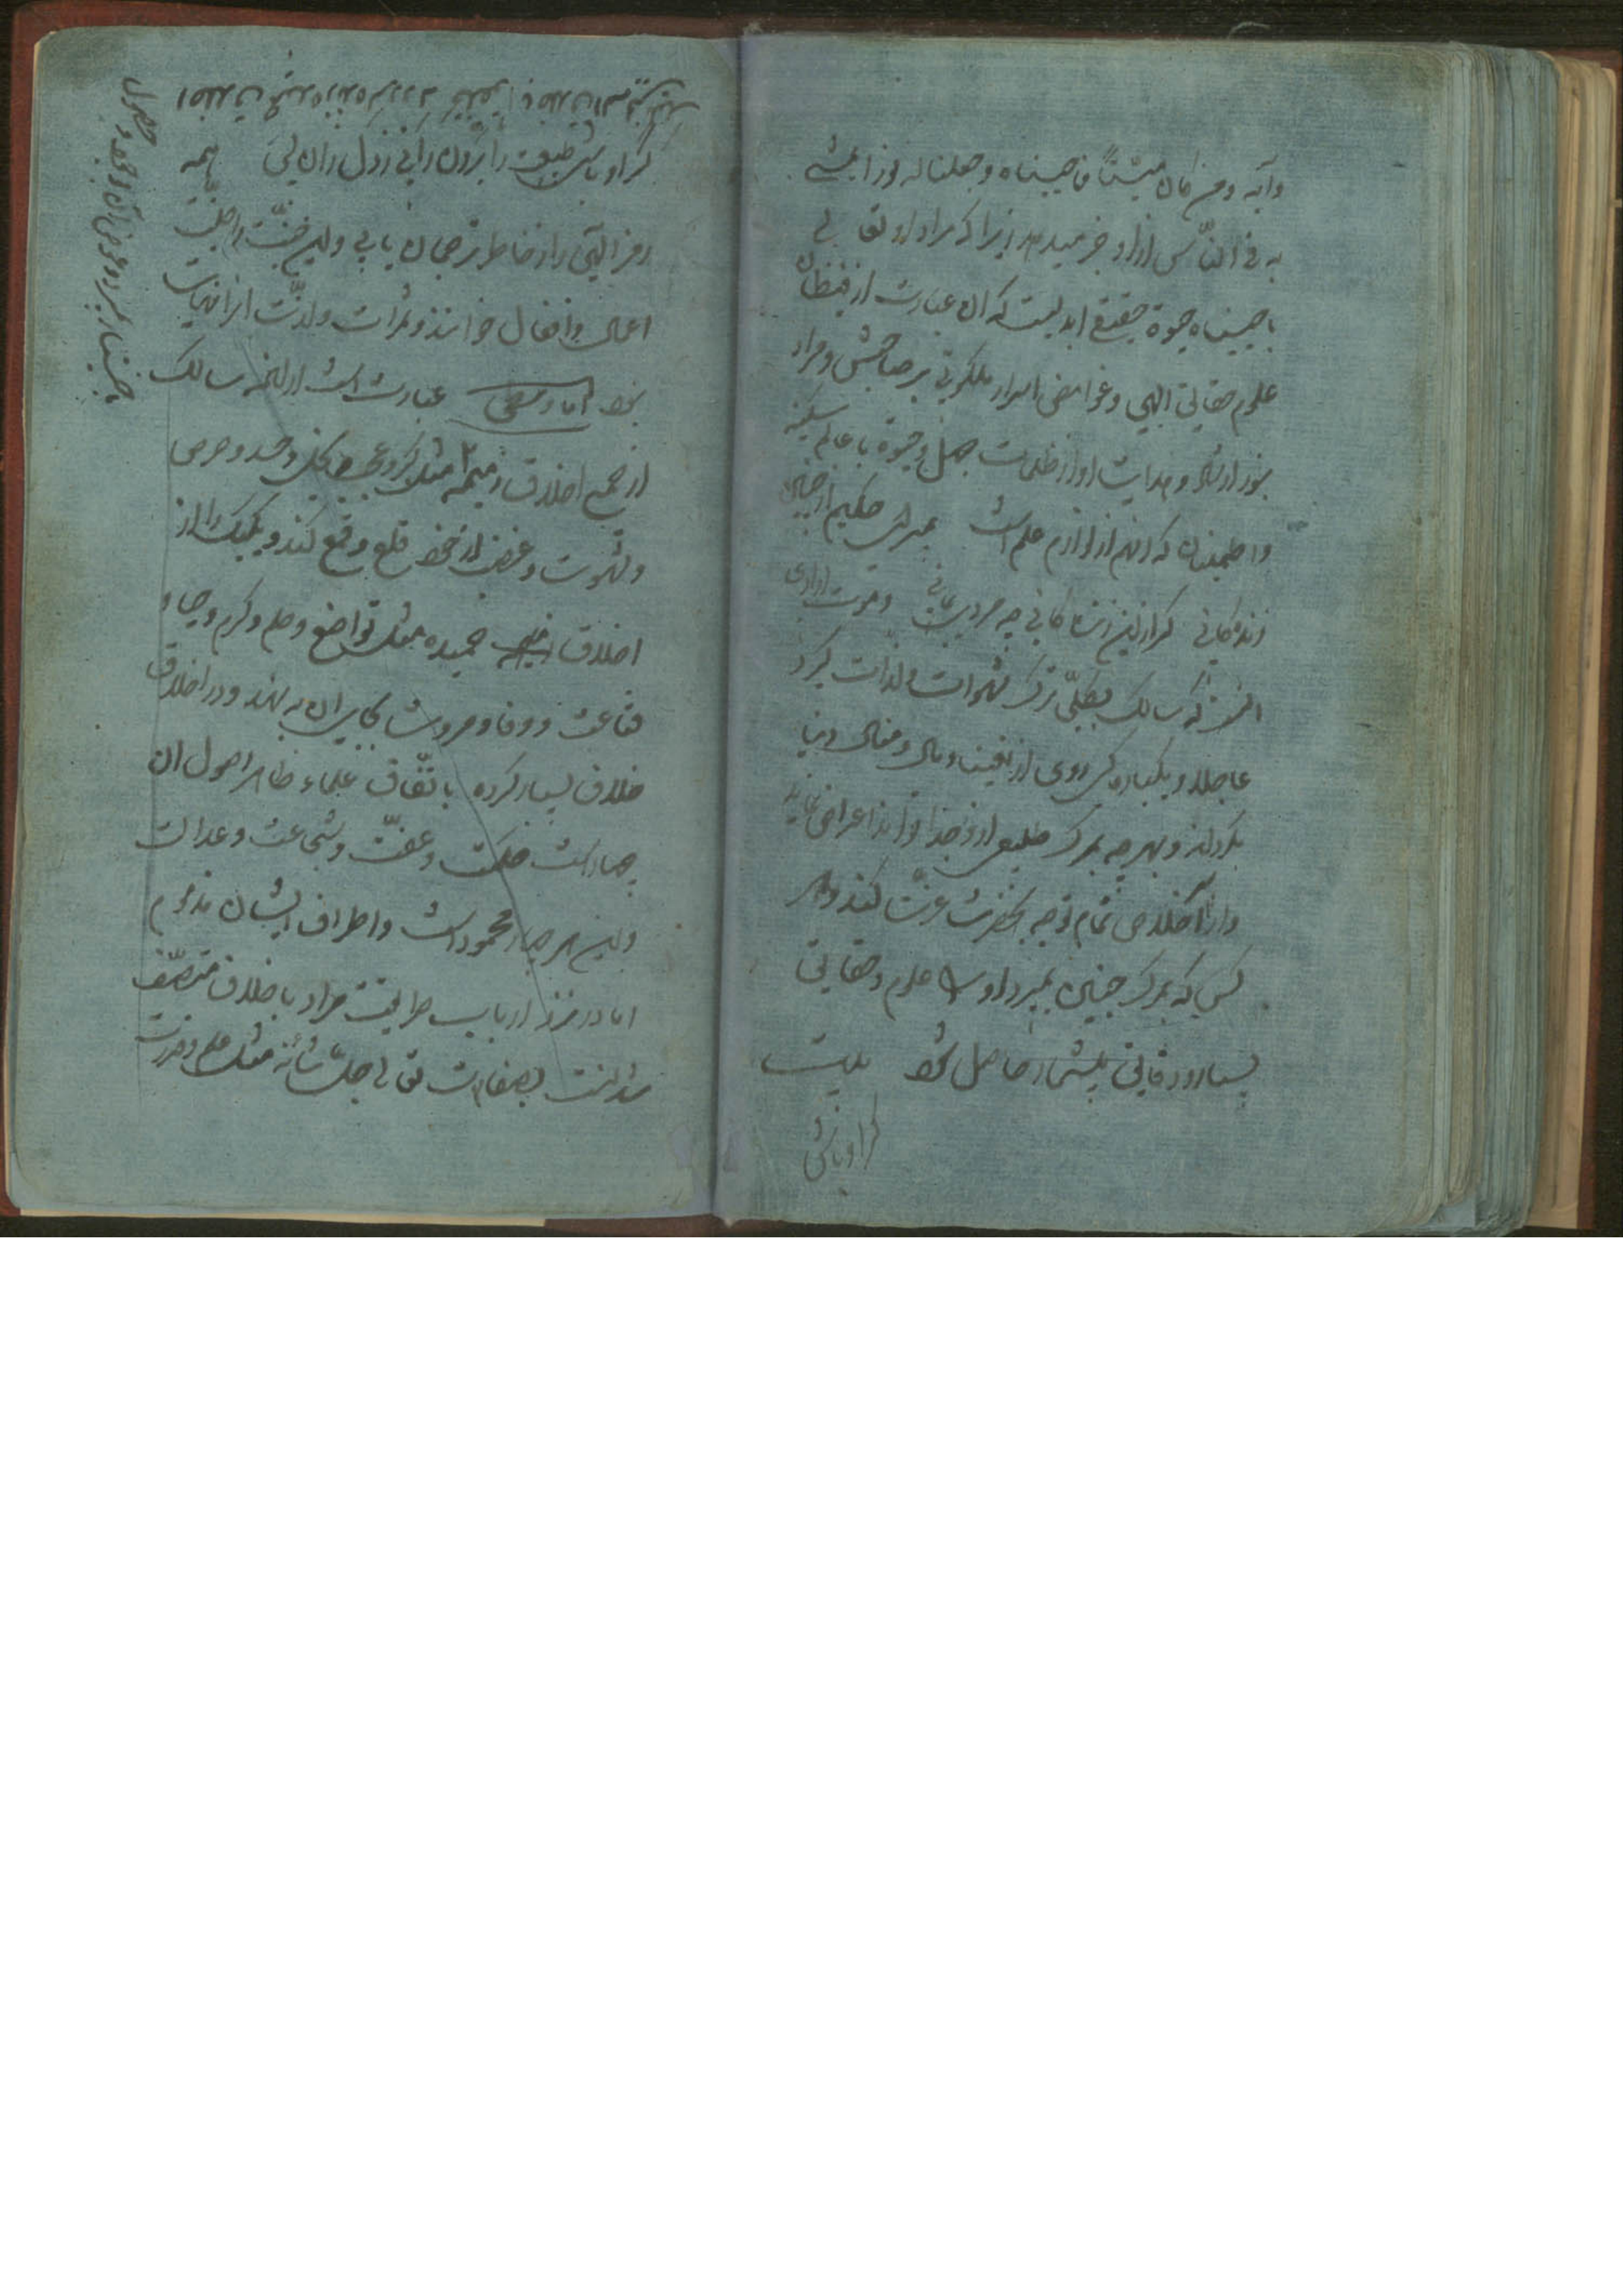 وآیه ومن کان میتًا فاحییناه وجعلنا له نورًا یمشی
به فی النّاس ازو خبر میدهد زیرا که مراد او تعالی
باحییناه حیوة حقیقی ابدیست که آن عبارت از فیضان
علوم حقایق الهی وغوامض اسرار ملکوتی بر صاحبش ومراد
بنور ارشاد وهدایت او از ظلمات جهل وحیوة با عالم سکینه
واطمینان که آنهم از لوازم علم است بمیر ای حکیم از چنین
زندگانی کز این زندگانی چو مردی بمانی وموت ارادی
آنست که سالک بکلّی ترک شهوات ولذات کیرد
عاجلا ویکباره کی روی از زینت ومال ومنال دنیا
بکرداند وبهرچه بمرک طبیعی ازو جدا تواند اعراض نماید
واز اخلاص تمام توجه بحضرت عزّت کند وهر
کسی که بمرک چنین بمیرد او را علوم وحقایق
بسیار ودقایق بیشمار حاصل شود بیت
کر اوباش
کر اوباش طبیعت را برون رانی ز دل زان پس همه
رمز الهی را ز خاطر ترجمان یابی واین جنّت را جنّت
اعمال وافعال خوانند وثمرات ولذّت آنرا نهایت
نبود اما وسطی عبارت است از آنچه سالک
از جمیع اخلاق ذمیمه مثل کبر وعجب وبخل وحسد وحرص
وشهوت وغضب از خود قلع وقمع کند ویکیک را از
اخلاق حمیده مثل تواضع وحلم وکرم وحیا و
قناعت ووفا ومروت بجای آن بنهد ودر اخلاق
خلاف بسیار کرده باتّفاق علماء ظاهر اصول آن
چهار است حکمت وعفّت وشجاعت وعدالت
واین هر چهار محمود است واطراف ایشان مذموم
اما در نزد ارباب طریقت مراد باخلاق متصّف
شدنست بصفات تعالی جلّ شأنه مثل علم وقدرت